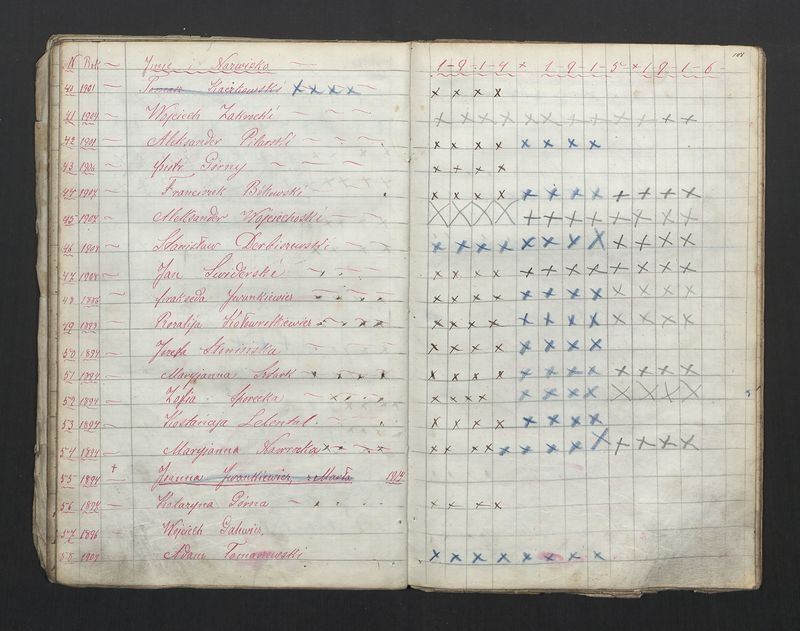 N Rok — Imie i Nazwiska 1-9-1-4 x 1-9-1-5 x 1-9-1-6 101
40 1901 Kaczkowski x x x x x x x x
41 1904 Wojciech Zakrocki x x x x x x x x x x x x
42 1901 Aleksander Pilarski x x x x x x x x
43 1906 Piotr Górny x x x x
44 1907 Franciszek Bitkowski x x x x x x x x x x x x
45 1907 Aleksander Wojciechoski X X X X x x x x x x x x
46 1908 Stanisław Derbiszewski x x x x x x x x x x x x
47 1908 Jan Swiderski x x x x x x x x x x x x
48 1886 prakseda Iwankiewicz x x x x x x x x x x x x
49 1893 Rozalija x x x x x x x x x x x x
50 1894 Jozefa x x x x x x x x
51 1894 Maryjanna x x x x x x x x x x x x
52 1894 Zofia x x x x x x x x x x x x
53 1894 Kostancyja Lelental. x x x x x x x x
54 1894 Maryjanna Nawrocka x x x x x x x x x x x x x x x x
55 1894 + Joanna Iwankiewicz zMarła 1914
56 1894 Katarzyna Górna x x x x
57 1896 Wojciech
58 1907 Adam Tomaszewski x x x x x x x x